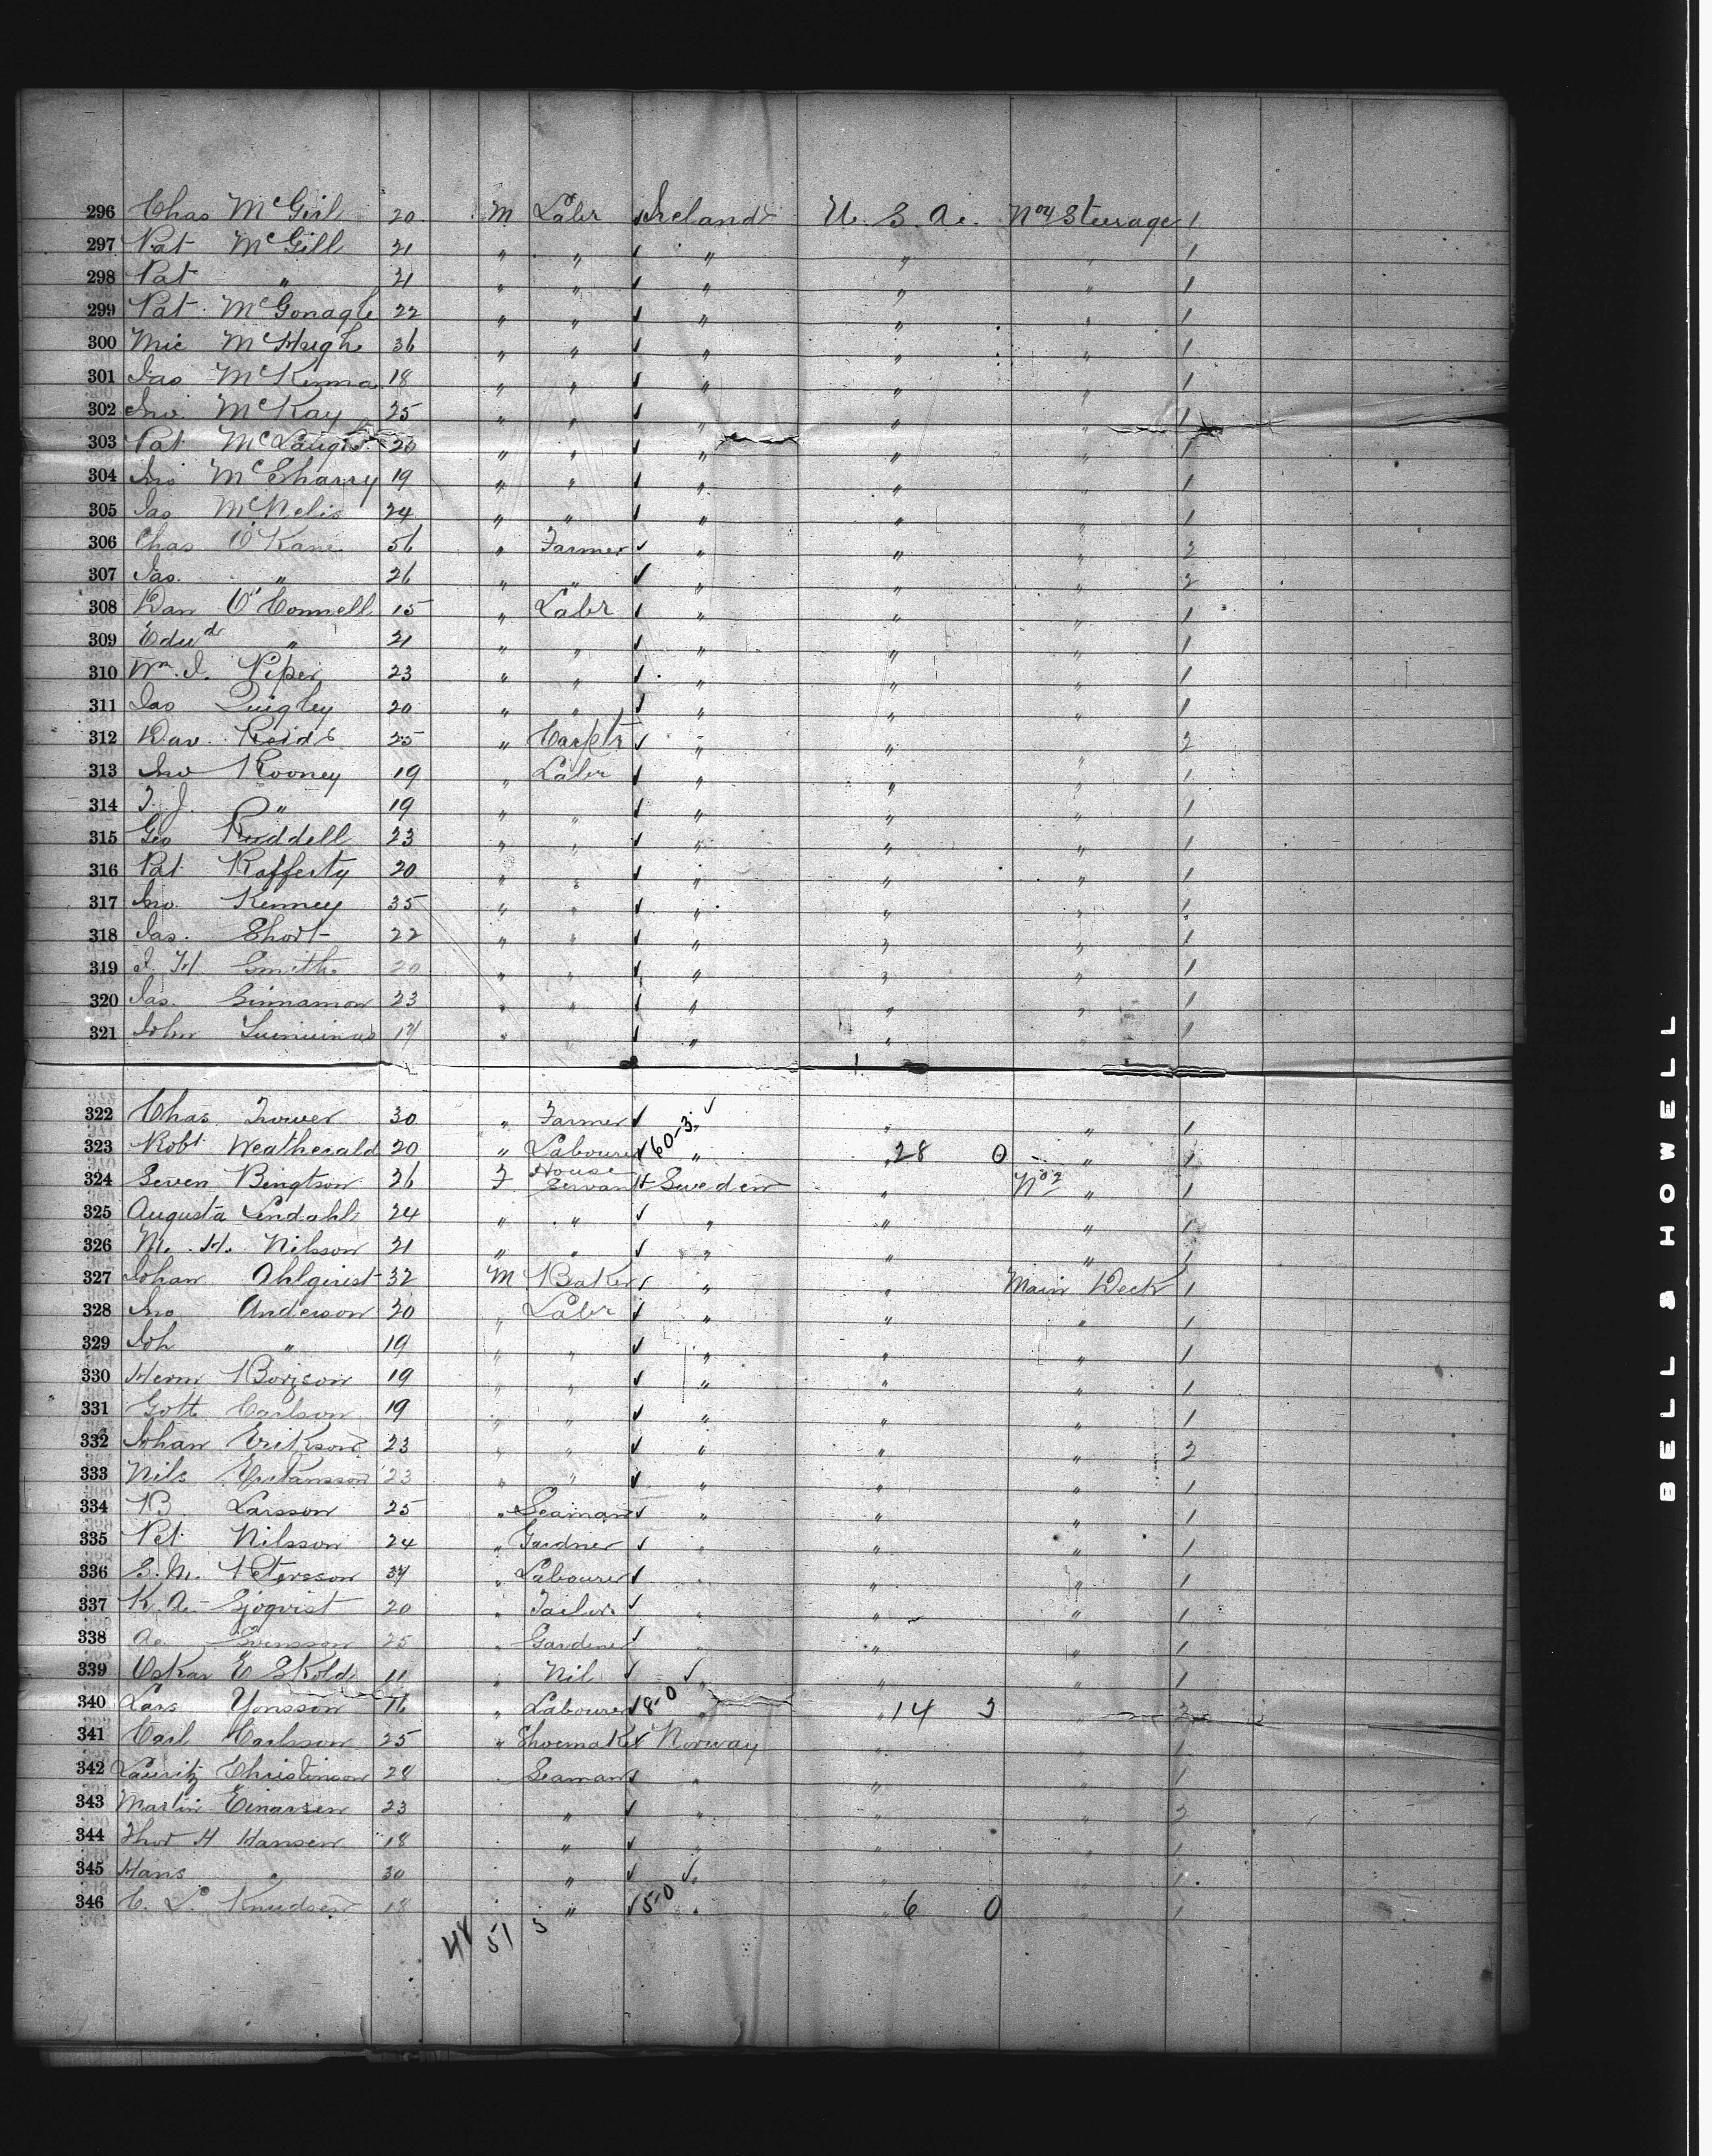 296 Chas McGirl 20 M Labr Ireland U. S. A. No 4 Steerage 1
297 Pat McGill 21 " " " " " 1
298 Pat " 21 " " " " " 1
299 Pat McGonagle 22 " " " " " 1
300 Mic McHugh 36 " " " " " 1
301 Jas McKenna 18 " " " " " 1
302 Jno. McKay 25 " " " " 1
303 Pat 26 " " " " " 1
304 Jno McSharry 19 " " " " " 1
305 Jas McNelis 24 " " " " " 1
306 Chas O'Kane 56 " Farmer " " " 2
307 Jas. " 26 " " " " " 2
308 Dan O'Connell 15 " Labr " " " 1
309 Edwd " 21 " " " " " 1
310 Wm. J. Piper 23 " " " " " 1
311 Jas Quigley 20 " " " " " 1
312 Dav. Reids 25 " Carptr " " " 2
313 Jno Rooney 19 " Labr " " " 1
314 T. J. " 19 " " " " " 1
315 Geo Ruddell 23 " " " " " 1
316 Pat Rafferty 20 " " " " " 1
317 Jno. Kenney 35 " " " " " 1
318 Jas. Short 22 " " " " " 1
319 J. H Smith 20 " " " " " 1
320 Jas. Sinnamon 23 " " " " " 1
321 John 17 " " " " 1
322 Chas 30 " Farmer " " 1
323 Robt Weatherald 20 " Labourer 60-3 " " 28 0 " 1
324 Seven Bingtson 26 F House Servant Sweden " No 2 " 1
325 Augusta Lindahl 24 " " " " " 1
326 M. H. Nilsson 21 " " " " " 1
327 Johan Ohlqvist 32 M Baker " " Main Deck 1
328 Jno Anderson 20 " Labr " " " 1
329 Joh " 19 " " " " " 1
330 Herm Borjson 19 " " " " " 1
331 Gott Carlson 19 " " " " " 1
332 Johan Erikson 23 " " " " " 2
333 Nils 23 " " " " " 1
334 B Larsson 25 " Seaman " " " 1
335 Pet Nilsson 24 " Gardner " " " 1
336 S. M. Petersson 34 " Labourer " " " 1
337 K. A. Sjoqvist 20 " Tailor " " " 1
338 A. Svensson 25 " Gardener " " " 1
339 Oskar E Skold 11 " Nil " " " 1
340 Lars Yonsson 16 " Labourer 18-0 " " 14 3 " 2
341 Carl Carlsson 25 " Shoemaker Norway " " 1
342 Lauritz 28 " Seaman " " " 1
343 Martin Einarsen 23 " " " " 2
344 Thor H Hansen 18 " " " " 1
345 Hans " 30 " " " " 1
346 C. L. Knudsen 18 " " 5-0 " " 6 0 " 1
48 51 3
BELL & HOWELL